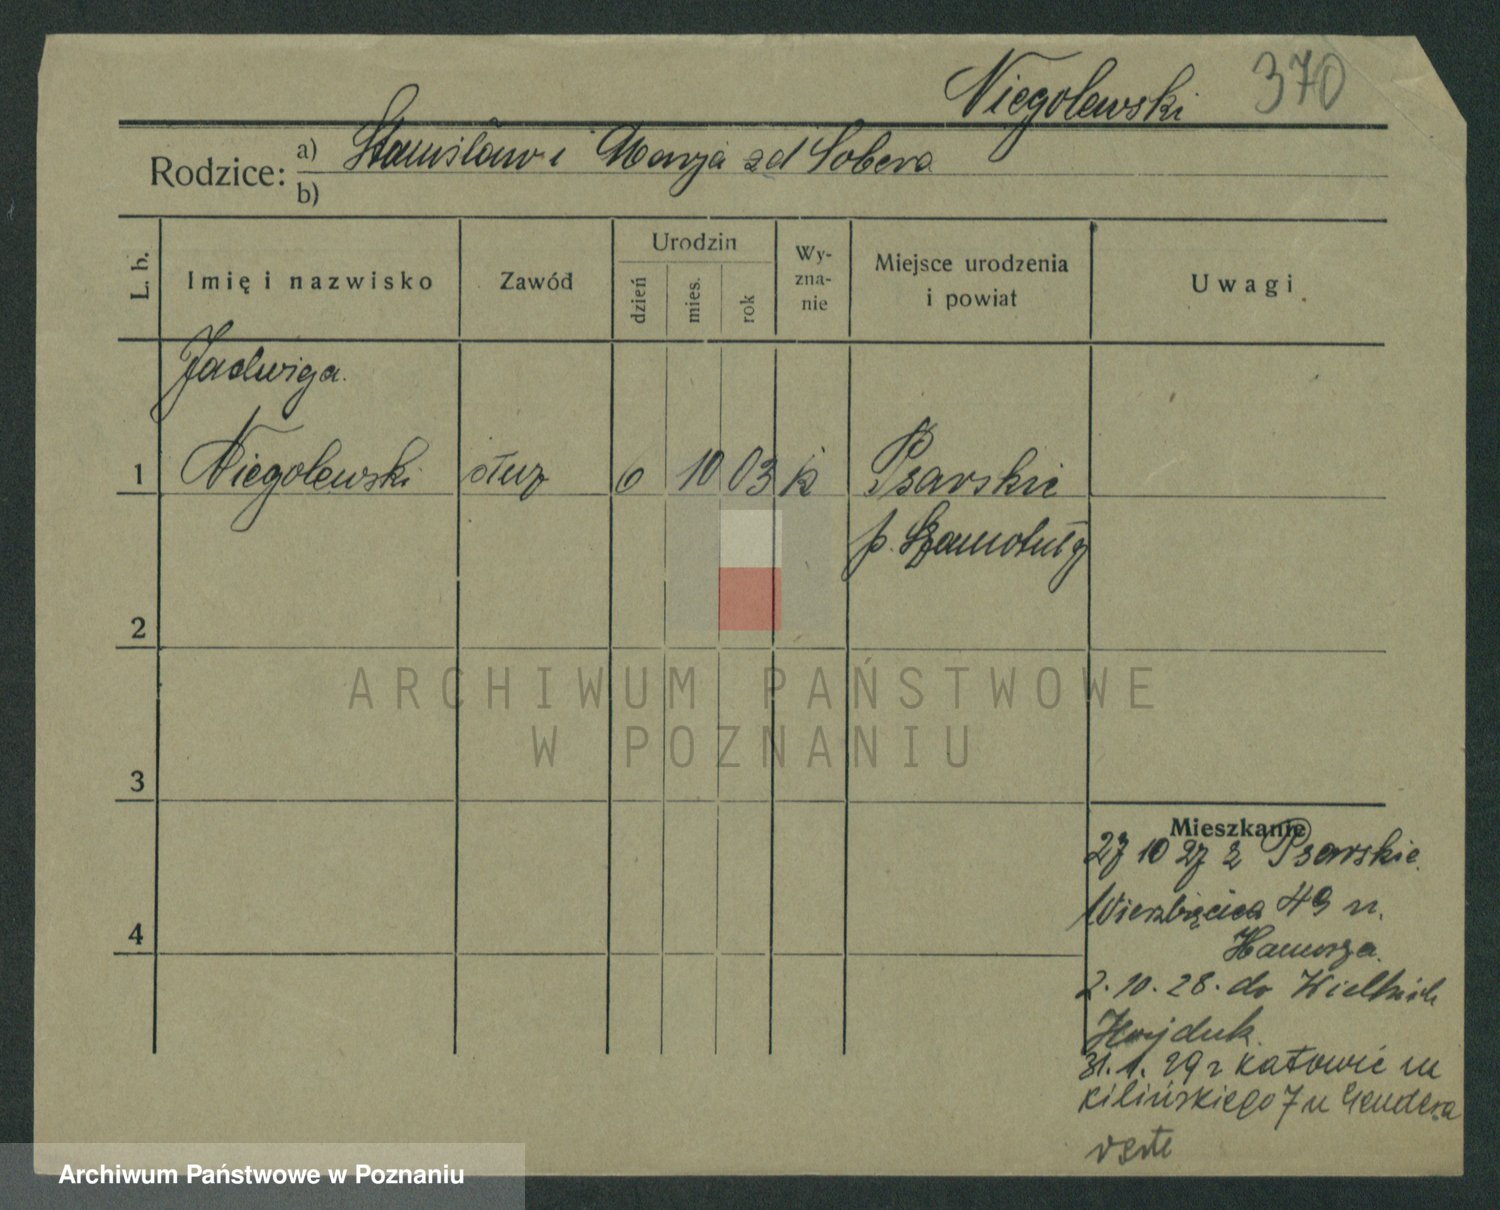 Niegolewski 370
Rodzice: a) Stanisław i Marja zd Sobera
b)
L. b. Imię i nazwisko Zawód Urodzin dzień mies. rok Wyzna-nie Miejsce urodzenia i powiat Uwagi
Jadwiga.
1 Niegolewski służ 6 10 03 k Psarskie
p. Szamotuły
2
ARCHIWUM PAŃSTWOWE
W POZNANIU
3
Mieszkanie
27 10 27 z Psarskie.
Wierzbięcice 49 u.
4
2. 10. 28. do Wielkich
Hajduk.
31. 1. 29 z Katowic ul
Kilińskiego 7 u
Archiwum Państwowe w Poznaniu